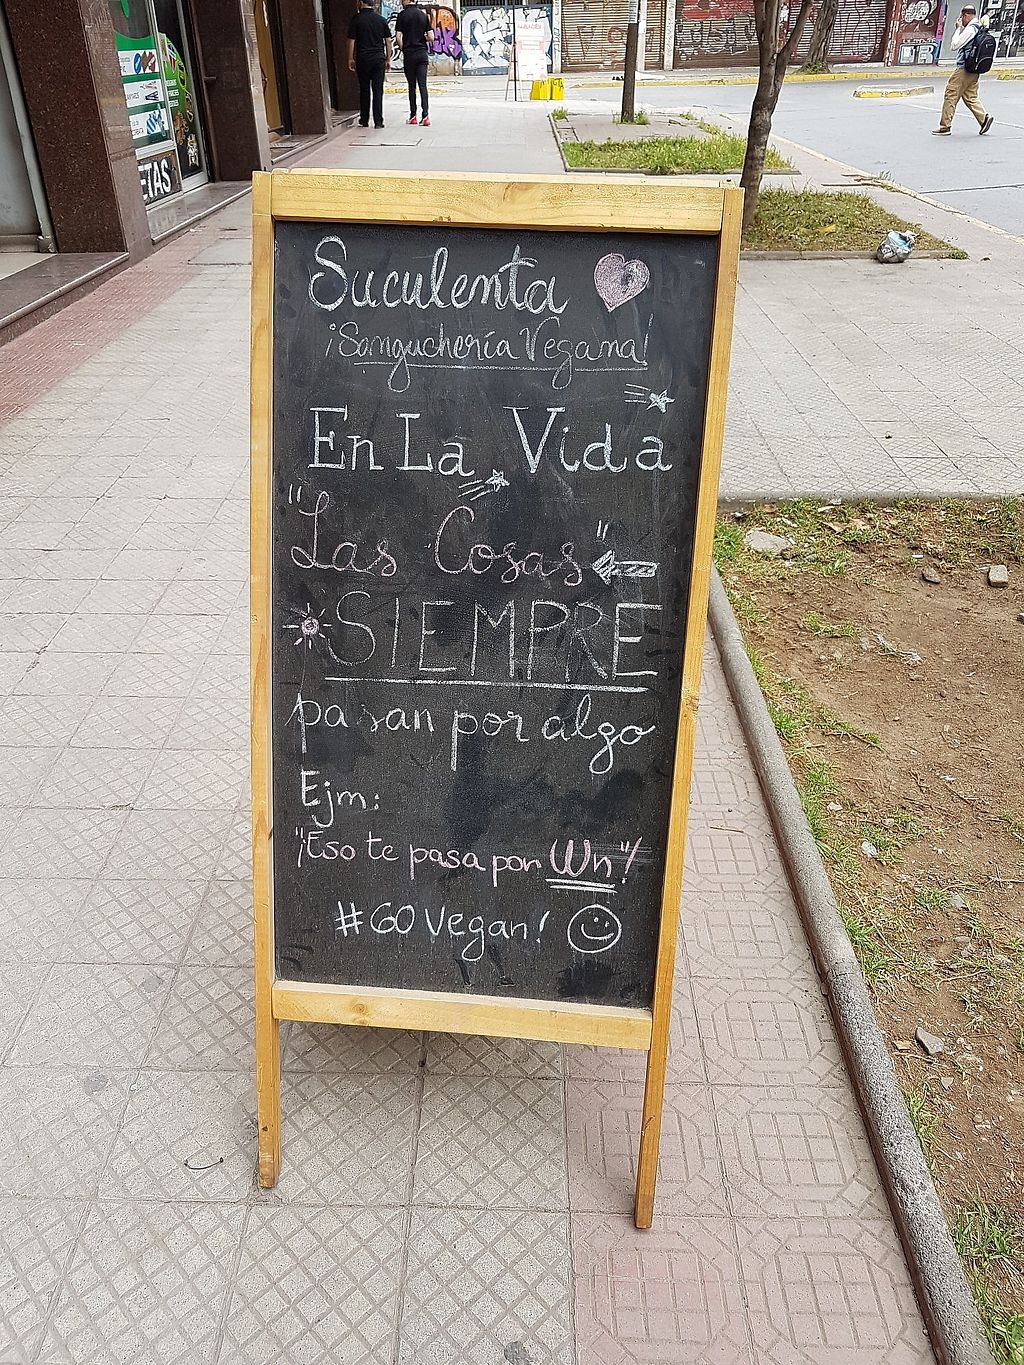 Suculenta
¡Sanguchería Vegana!
En La Vida
"Las Cosas"
SIEMPRE
pasan por algo
Ejm:
"¡Eso te pasa por Wn"!
#GO Vegan!
ETAS